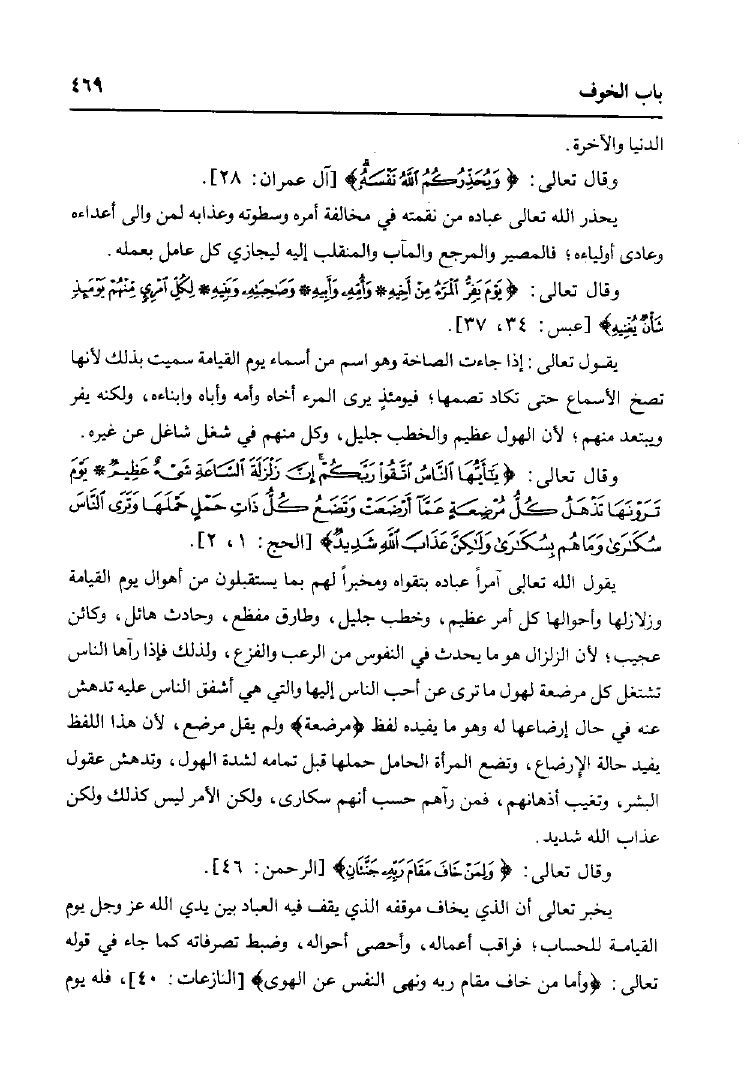 باب الخوف ٤٦٩
الدنيا والآخرة .
وقال تعالى : ﴿ وَيُحَذِّرُكُمُ ٱللَّهُ نَفْسَهُۥۗ ﴾ [آل عمران : ٢٨] .
يحذر الله تعالى عباده من نقمته في مخالفة أمره وسطوته وعذابه لمن والى أعداءه
وعادى أولياءه ؛ فالمصير والمرجع والمآب والمنقلب إليه ليجازي كل عامل بعمله .
وقال تعالى : ﴿ يَوْمَ يَفِرُّ ٱلْمَرْءُ مِنْ أَخِيهِ * وَأُمِّهِۦ وَأَبِيهِ * وَصَٰحِبَتِهِۦ وَبَنِيهِ * لِكُلِّ ٱمْرِئٍ مِّنْهُمْ يَوْمَئِذٍ
شَأْنٌ يُغْنِيهِ ﴾ [عبس : ٣٤ ، ٣٧] .
يقول تعالى : إذا جاءت الصاخة وهو اسم من أسماء يوم القيامة سميت بذلك لأنها
تصخ الأسماع حتى تكاد تصمها ؛ فيومئذٍ يرى المرء أخاه وأمه وأباه وابناءه ، ولكنه يفر
ويبتعد منهم ؛ لأن الهول عظيم والخطب جليل ، وكل منهم في شغل شاغل عن غيره .
وقال تعالى : ﴿ يَٰٓأَيُّهَا ٱلنَّاسُ ٱتَّقُوا۟ رَبَّكُمْۚ إِنَّ زَلْزَلَةَ ٱلسَّاعَةِ شَىْءٌ عَظِيمٌ * يَوْمَ
تَرَوْنَهَا تَذْهَلُ كُلُّ مُرْضِعَةٍ عَمَّآ أَرْضَعَتْ وَتَضَعُ كُلُّ ذَاتِ حَمْلٍ حَمْلَهَا وَتَرَى ٱلنَّاسَ
سُكَٰرَىٰ وَمَا هُم بِسُكَٰرَىٰ وَلَٰكِنَّ عَذَابَ ٱللَّهِ شَدِيدٌ ﴾ [الحج : ١ ، ٢] .
يقول الله تعالى آمراً عباده بتقواه ومخبراً لهم بما يستقبلون من أهوال يوم القيامة
وزلازلها وأحوالها كل أمر عظيم ، وخطب جليل ، وطارق مفظع ، وحادث هائل ، وكائن
عجيب ؛ لأن الزلزال هو ما يحدث في النفوس من الرعب والفزع ، ولذلك فإذا رآها الناس
تشتغل كل مرضعة لهول ما ترى عن أحب الناس إليها والتي هي أشفق الناس عليه تدهش
عنه في حال إرضاعها له وهو ما يفيده لفظ ﴿مرضعة﴾ ولم يقل مرضع ، لأن هذا اللفظ
يفيد حالة الإرضاع ، وتضع المرأة الحامل حملها قبل تمامه لشدة الهول ، وتدهش عقول
البشر ، وتغيب أذهانهم ، فمن رآهم حسب أنهم سكارى ، ولكن الأمر ليس كذلك ولكن
عذاب الله شديد .
وقال تعالى : ﴿ وَلِمَنْ خَافَ مَقَامَ رَبِّهِۦ جَنَّتَانِ ﴾ [الرحمن : ٤٦] .
يخبر تعالى أن الذي يخاف موقفه الذي يقف فيه العباد بين يدي الله عز وجل يوم
القيامة للحساب ؛ فراقب أعماله ، وأحصى أحواله ، وضبط تصرفاته كما جاء في قوله
تعالى : ﴿وأما من خاف مقام ربه ونهى النفس عن الهوى﴾ [النازعات : ٤٠] ، فله يوم